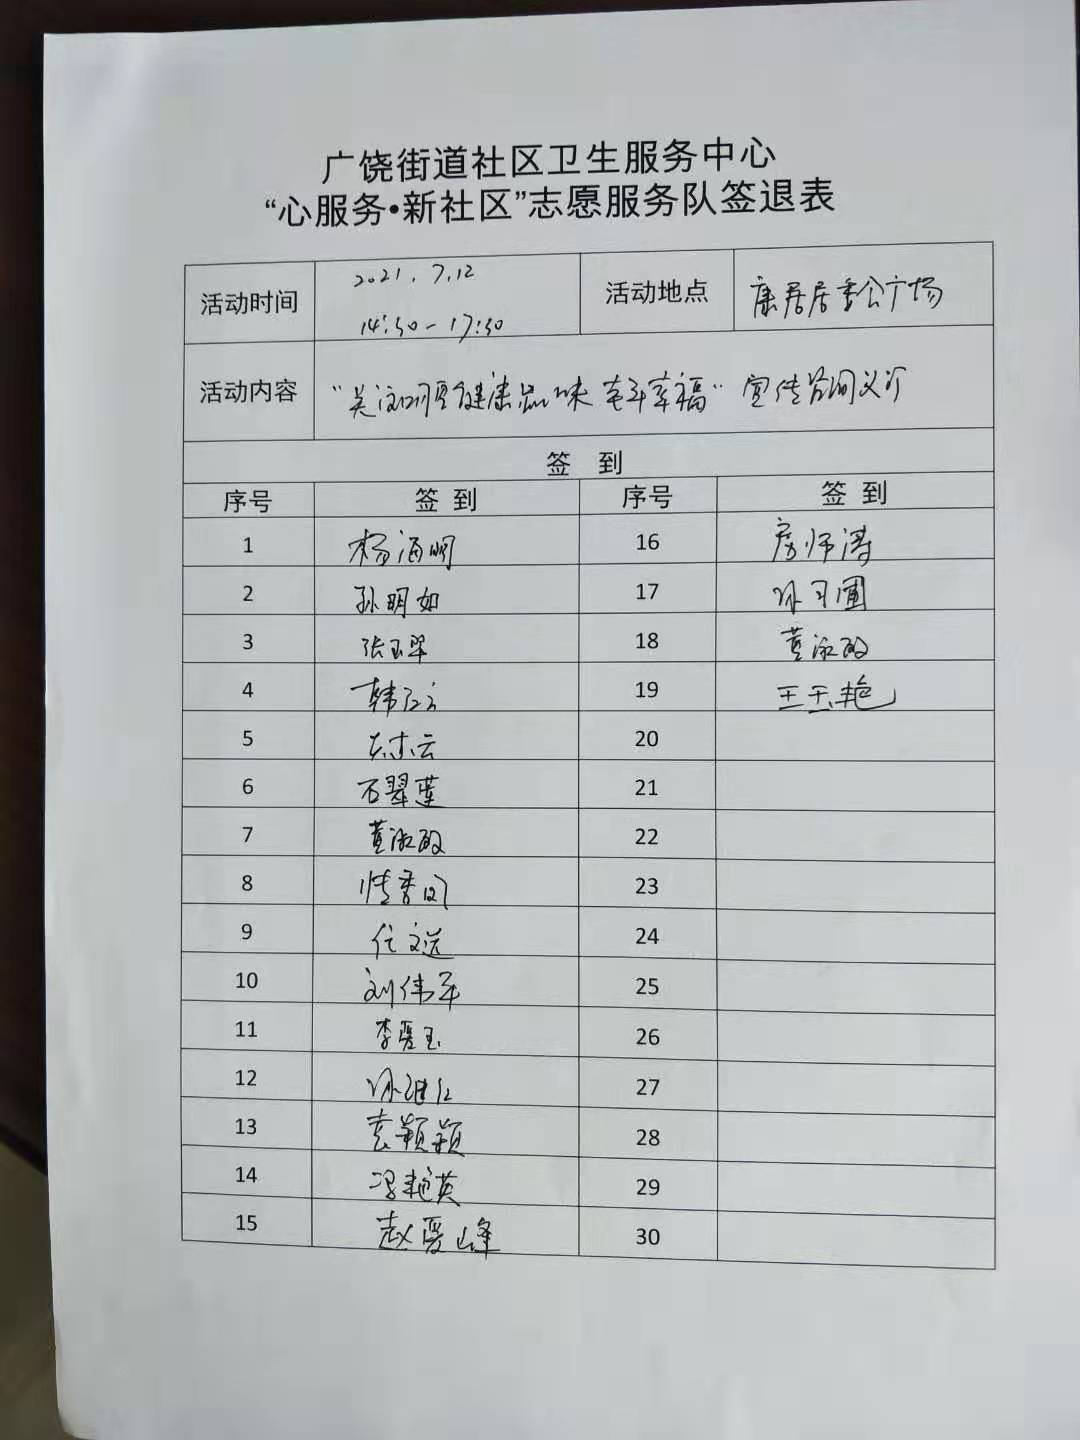 广饶街道社区卫生服务中心
“心服务•新社区”志愿服务队签退表
活动时间 2021.7.12 14:30-17:30 活动地点 康居居委会广场
活动内容 “关注口腔健康品味老年幸福”宣传 义诊
签 到
序号 签 到 序号 签 到
1 杨海明 16 房师涛
2 孙明如 17
3 张玉翠 18 黄淑敏
4 韩红云 19 王玉艳
5 20
6 石翠莲 21
7 黄淑敏 22
8 23
9 任文远 24
10 刘伟军 25
11 李爱玉 26
12 孙继红 27
13 袁颖颖 28
14 冯艳英 29
15 赵夏峰 30